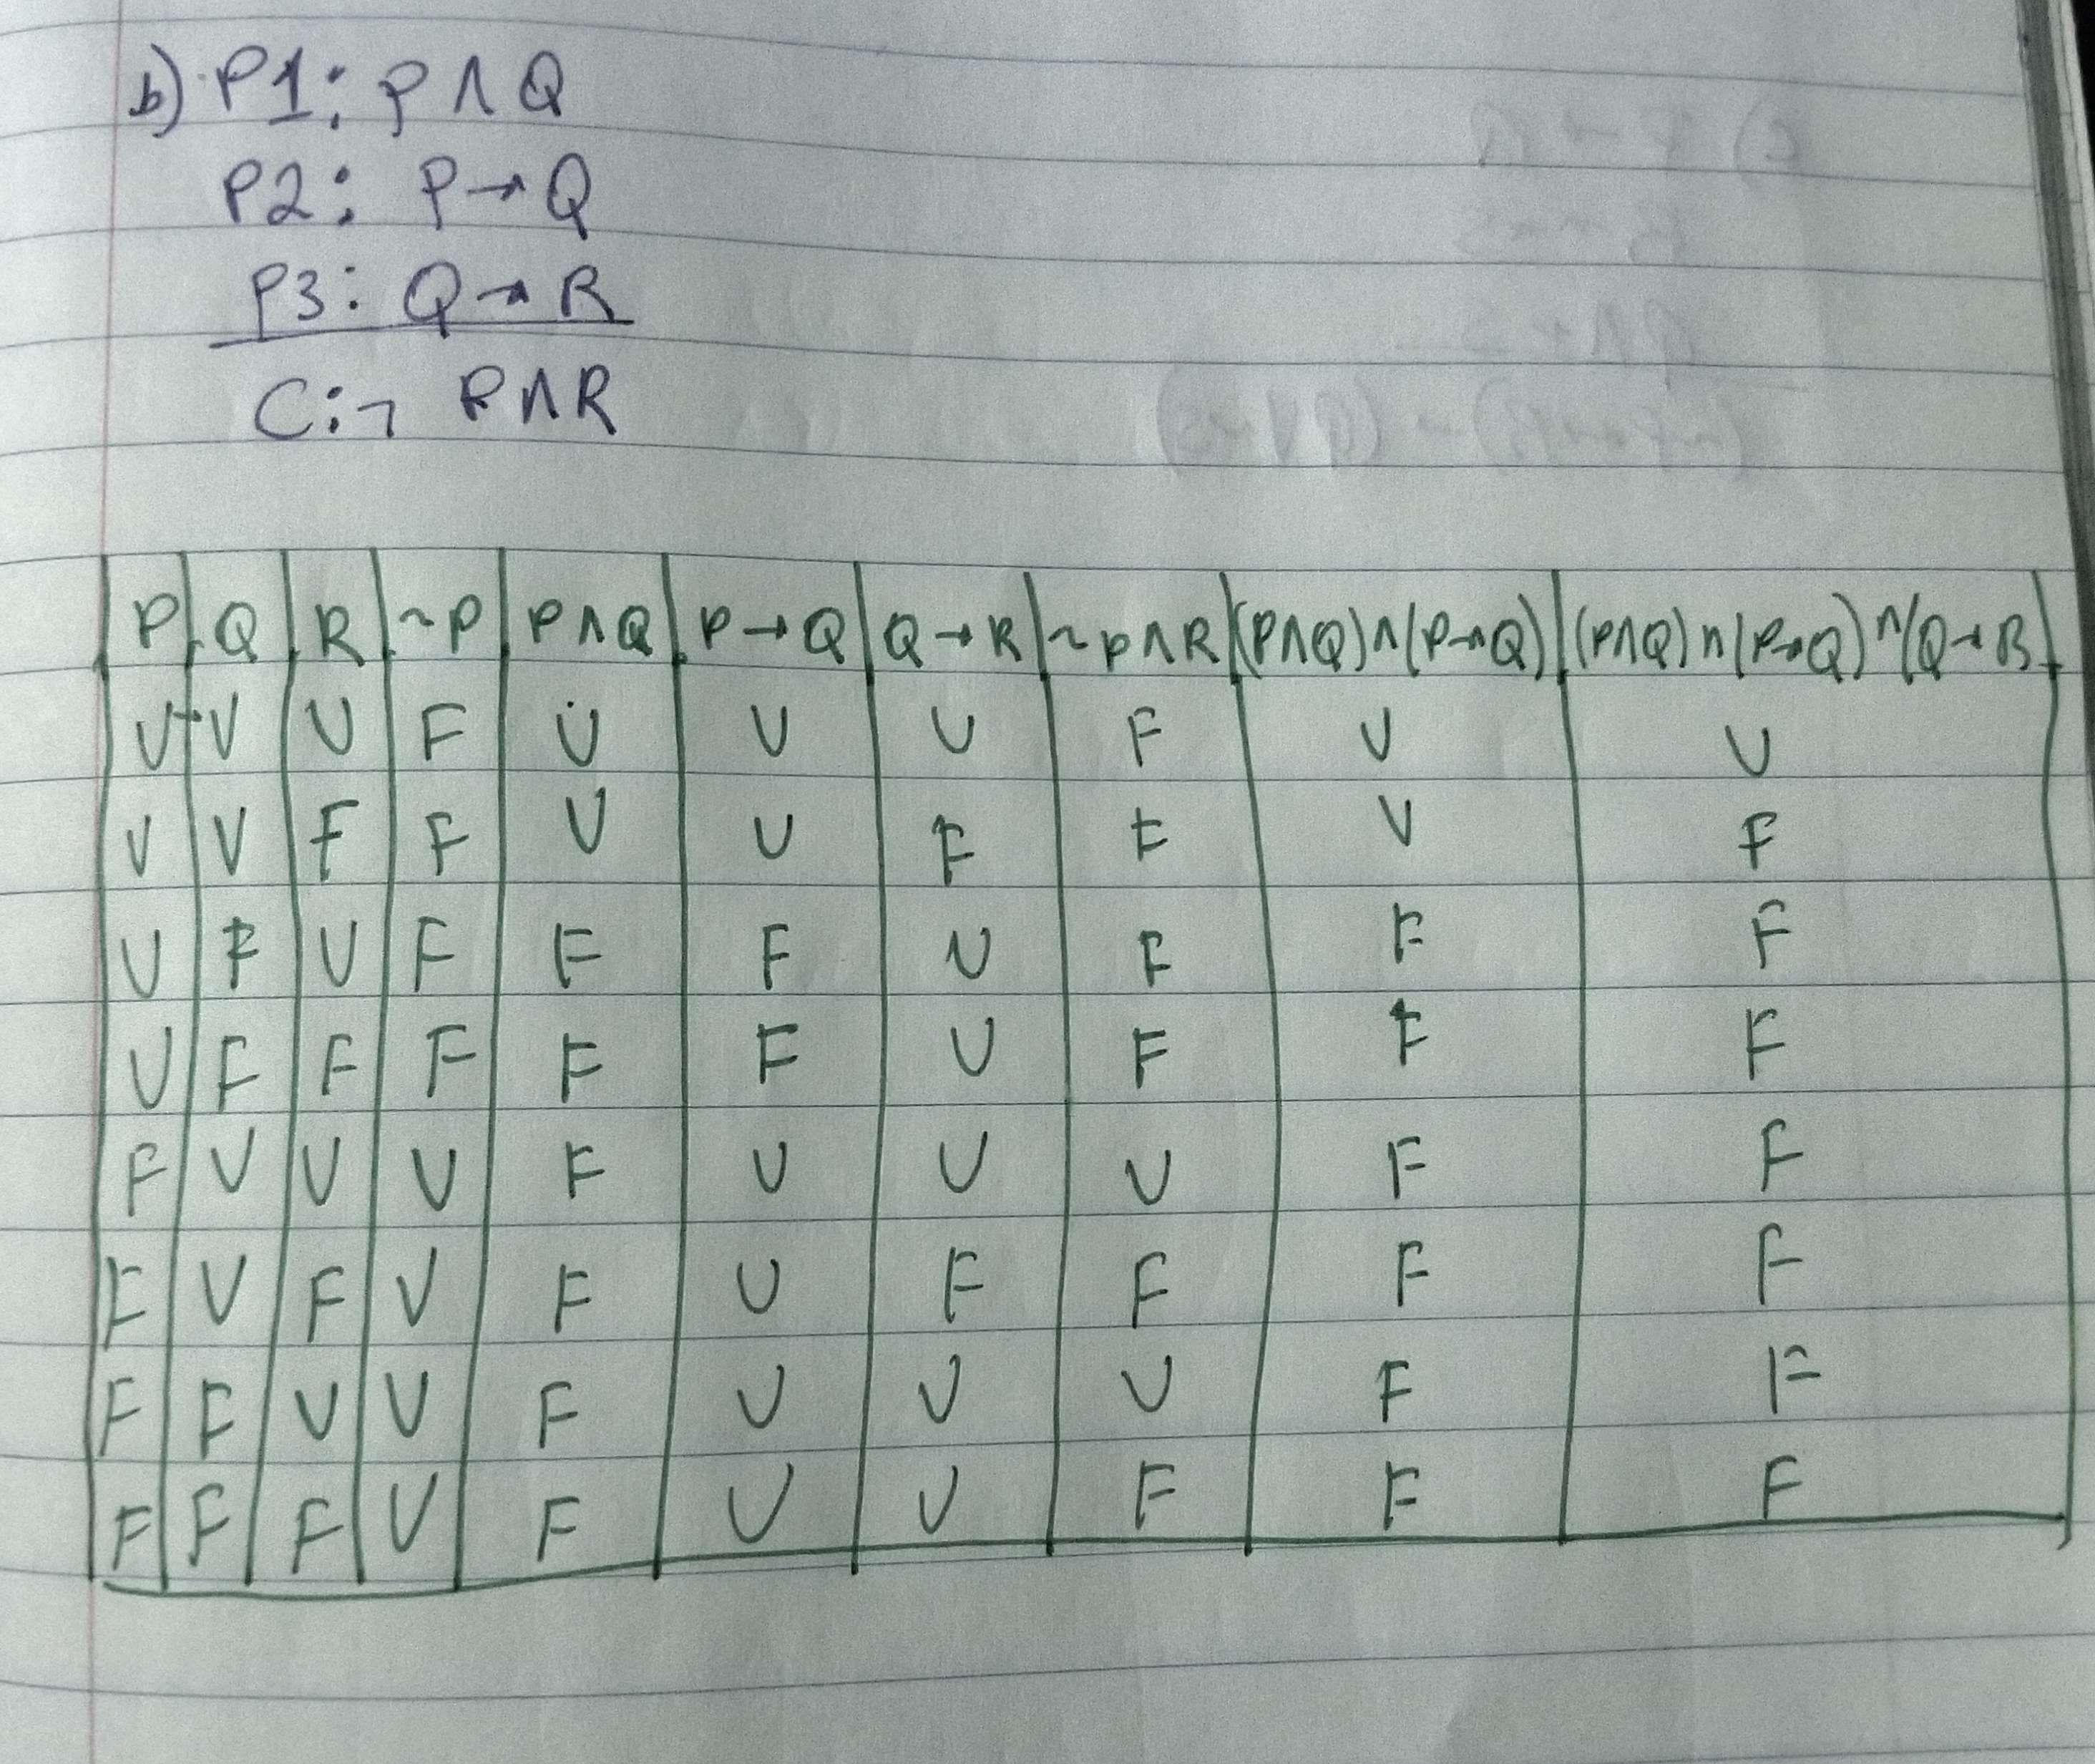 b) P1: P ∧ Q
P2: P → Q
P3: Q → R
C: ¬ P ∧ R
P Q R ~P P∧Q P→Q Q→R ~P∧R (P∧Q)∧(P→Q) (P∧Q)∧(P→Q)∧(Q→R)
V V V F V V V F V V
V V F F V V F F V F
V F V F F F V F F F
V F F F F F V F F F
F V V V F V V V F F
F V F V F V F F F F
F F V V F V V V F F
F F F V F V V F F F